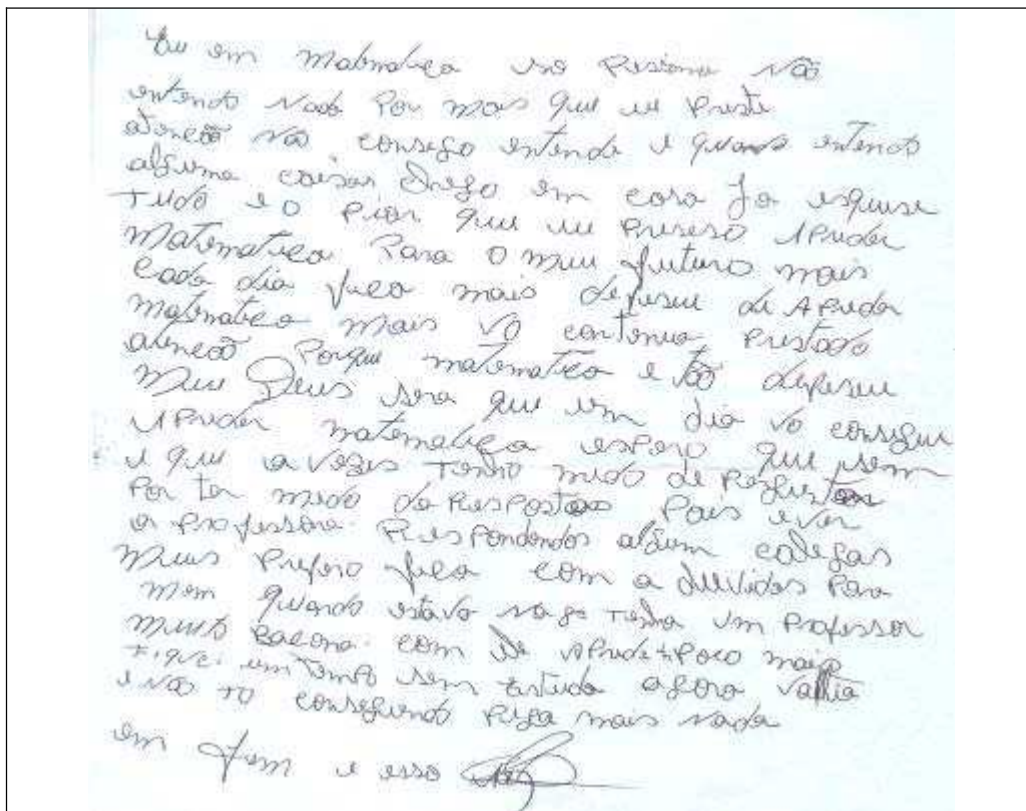 Eu em matematica sou pessima não
entendo nada Por mais que eu Preste
atencão não consego entende e quando entendo
alguma coisa chego em casa Ja esquese
tudo e o Pior que eu Preseso APrender
matematica Para o meu futuro mais
cada dia fico mais defeseu de APrender
matematica mais vo continua Prestado
atencão Porque matematica e tão defeseu
meu Deus sera que um dia vo consegui
APrender matematica espero que sem
e que as vezes tenho medo de Perguntar
Por ter medo da Resposta Pois ever
a Professora Respondendos algum colegas
meus Prefero fica com a duvidas Para
mem quando estava na tenha um Professor
muito Bacana com ele APrende Poco mais
Fiquei um tempo sem Estuda agora
e não to conseguindo Pega mais nada
em fem e esso